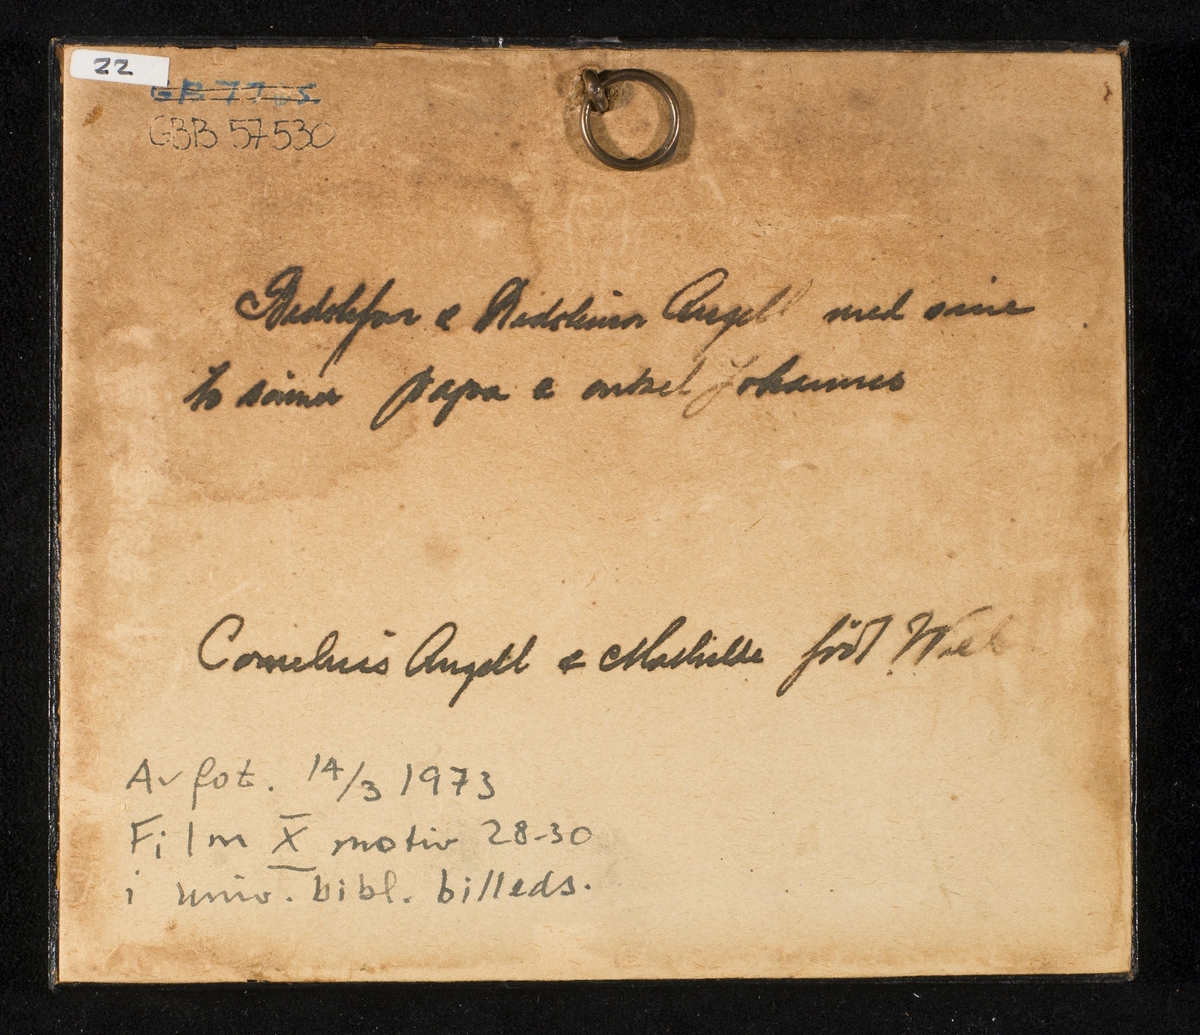 22
GBB 57530
Bedstefar & Bedstemor Angell med sine
to sönner papa & onkel Johannes
Cornelius Angell & Mathilde född
Av fot. 14/3 1973
Film X motiv 28-30
i univ. bibl. billeds.